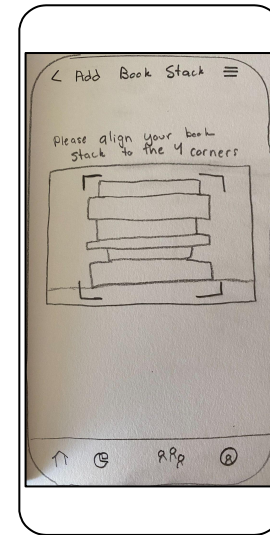 < Add Book Stack ≡
Please align your book
stack to the 4 corners